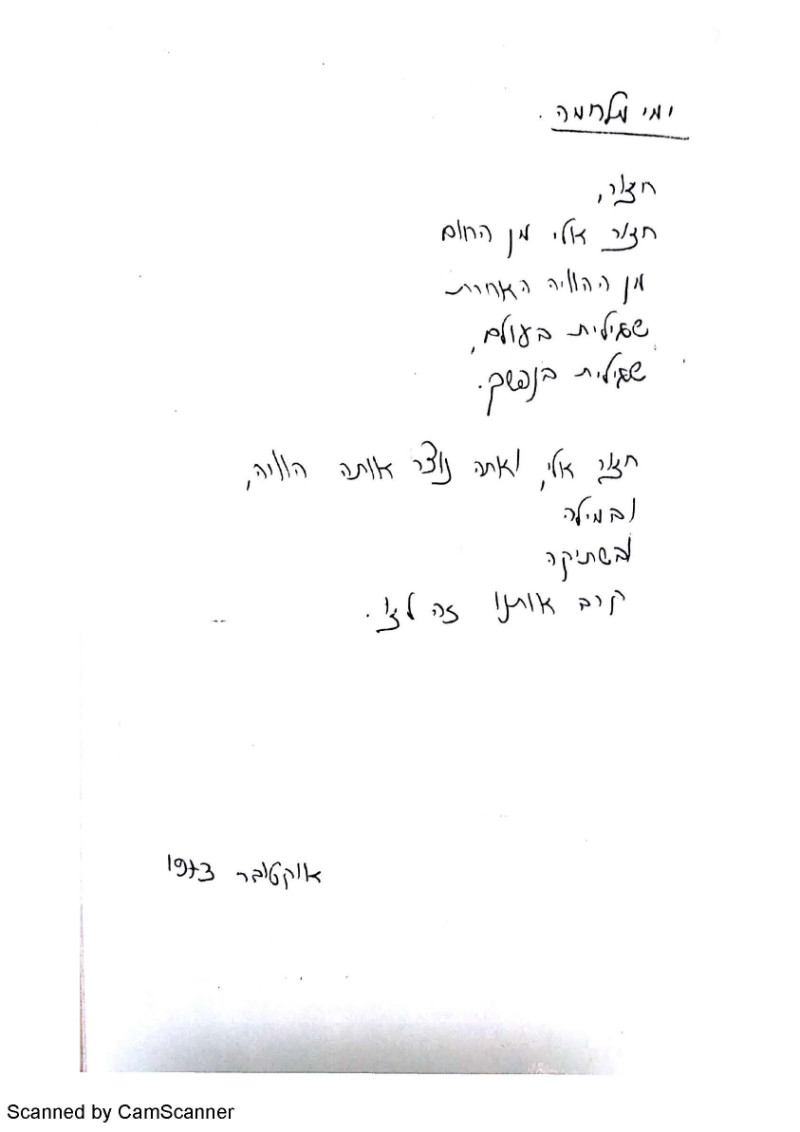 ימי מלחמה.
חזור,
חזור אלי מן החום
מן ההוויה האחרת
שגילית בעולם,
שגילית בנפשך.
חזור אלי, ואתה נוצר אותה הוויה,
ובמילה
ובשתיקה
קרב אותנו זה לזו.
אוקטובר 1973
Scanned by CamScanner